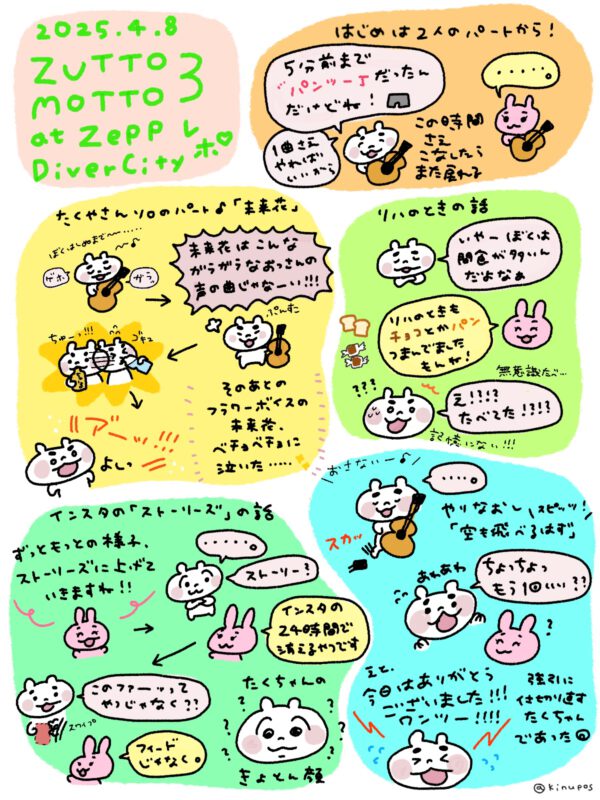 2025.4.8
ZUTTO
MOTTO 3
at Zepp
DiverCity レポ♡
はじめは2人のパートから！
5分前まで
"パンツ一丁"だったん
だけどね！
1曲さえ
やれば
いいから
・・・・・。
この時間
さえ
こなしたら
また戻れる
たくやさんソロのパート♪「未来花」
ぼくはじめまで〜……
〜♪
ゲホッ
ガラッ
未来花はこんな
がらがらなおっさんの
声の曲じゃなーい!!!
ぷんすこ
ちゅーっ!!!
ゴキュ
"アーッ!!"
よしっ
そのあとの
フラワーボイスの
未来花、
ベチョベチョに
泣いた……
リハのときの話
いやーぼくは
間食が多いん
だよなぁ
リハのときも
チョコとかパン
つまんでました
もんね！
無意識だべ…
???
え!!!?
たべてた!?!?
記憶にない!!!
インスタの「ストーリーズ」の話
ずっともっとの様子、
ストーリーズに上げて
いきますね!!
・・・・。
ストーリー？
インスタの
24時間で
消えるやつです
このファーッって
やつじゃなく??
スワイプ
フィード
じゃなく。
たくちゃんの
? ? ? ?
きょとん顔
おさないー♪
・・・・。
スカッ
やりなおし スピッツ！
「空も飛べるはず」
あわあわ
ちょっちょっ
もう1回いい??
?
えと、
今日はありがとう
ございました!!!
ワンツー!!!!
強引に
仕切り直す
たくちゃん
であった
@kinupos